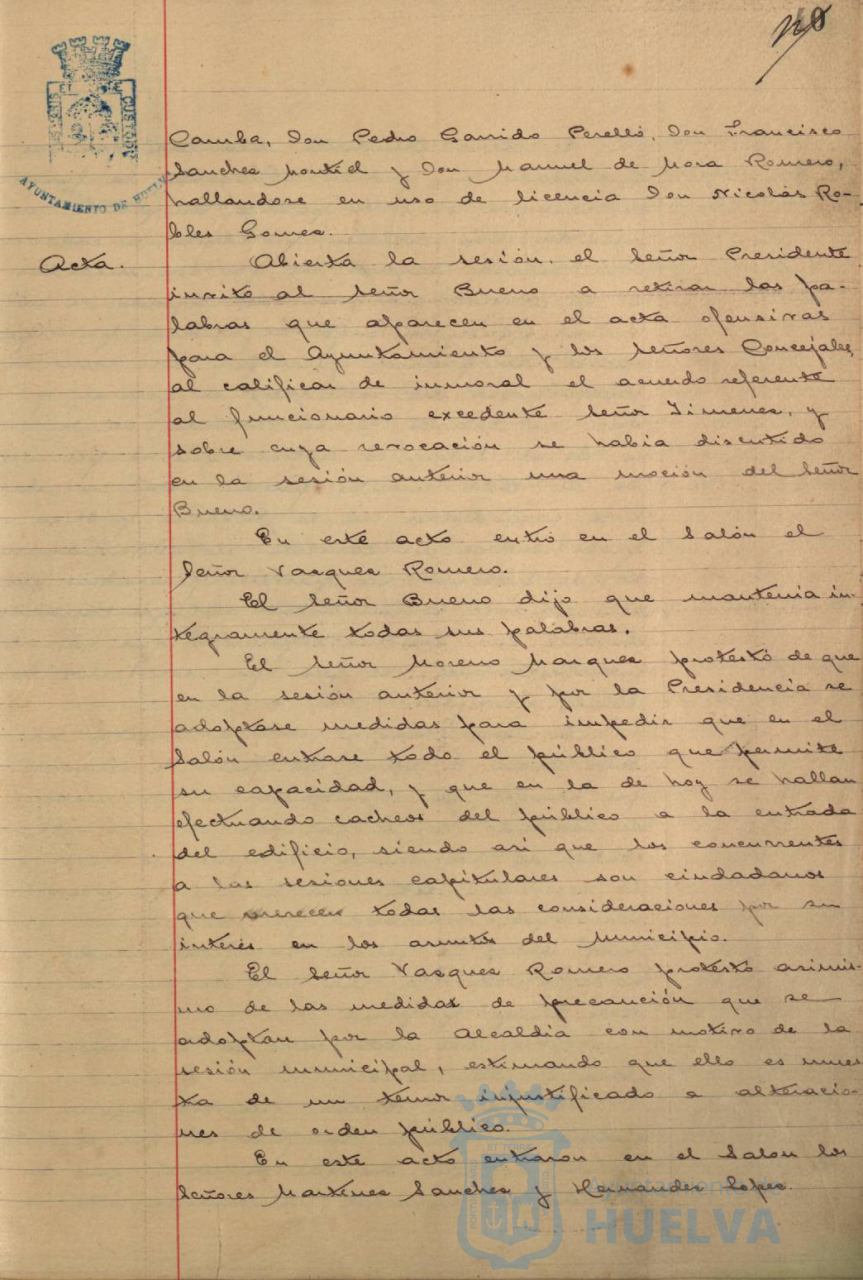 Camba, Don Pedro Garrido Perelló, Don Francisco
Sanchez Montiel y Don Manuel de Mora Romero,
hallandose en uso de licencia Don Nicolás Ro-
bles Gomez.
Acta.
Abierta la sesión, el Señor Presidente
invitó al Señor Bueno a retirar las pa-
labras que aparecen en el acta ofensivas
para el Ayuntamiento y los Señores Concejales,
al calificar de inmoral el acuerdo referente
al funcionario excedente Señor Jimenez, y
sobre cuya revocación se había discutido
en la sesión anterior una moción del Señor
Bueno.
En este acto entró en el Salón el
Señor Vazquez Romero.
El Señor Bueno dijo que mantenia in-
tegramente todas sus palabras.
El Señor Moreno Marquez protestó de que
en la sesión anterior y por la Presidencia se
adoptase medidas para impedir que en el
Salón entrase todo el público que permite
su capacidad, y que en la de hoy se hallan
efectuando cacheos del público a la entrada
del edificio, siendo asi que los concurrentes
a las sesiones capitulares son ciudadanos
que merecen todas las consideraciones por su
interés en los asuntos del Municipio.
El Señor Vazquez Romero protestó asimis-
mo de las medidas de precaución que se
adoptan por la Alcaldia con motivo de la
sesión municipal, estimando que ello es mues
tra de un temor injustificado a alteracio-
nes de orden público.
En este acto entraron en el Salon los
Señores Martinez Sanchez y Hernandez Lopez.
AYUNTAMIENTO DE HUELVA
HUELVA